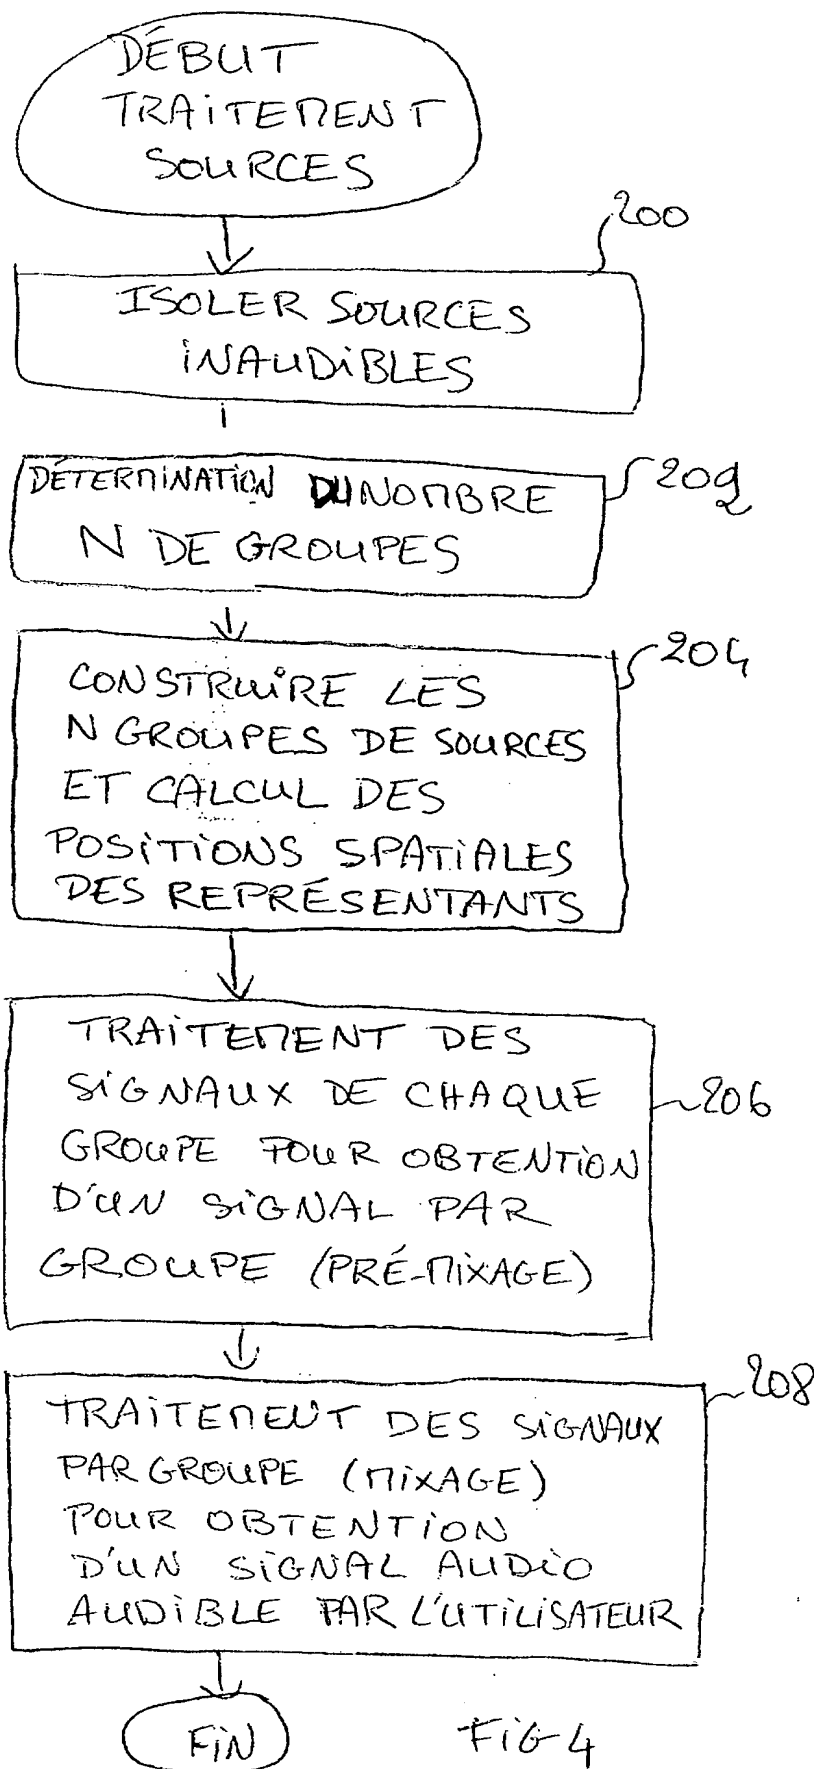 DÉBUT
TRAITEMENT
SOURCES
200
ISOLER SOURCES
INAUDIBLES
202
DÉTERMINATION DU NOMBRE
N DE GROUPES
204
CONSTRUIRE LES
N GROUPES DE SOURCES
ET CALCUL DES
POSITIONS SPATIALES
DES REPRÉSENTANTS
206
TRAITEMENT DES
SIGNAUX DE CHAQUE
GROUPE POUR OBTENTION
D'UN SIGNAL PAR
GROUPE (PRÉ-MIXAGE)
208
TRAITEMENT DES SIGNAUX
PAR GROUPE (MIXAGE)
POUR OBTENTION
D'UN SIGNAL AUDIO
AUDIBLE PAR L'UTILISATEUR
FIN
FIG 4